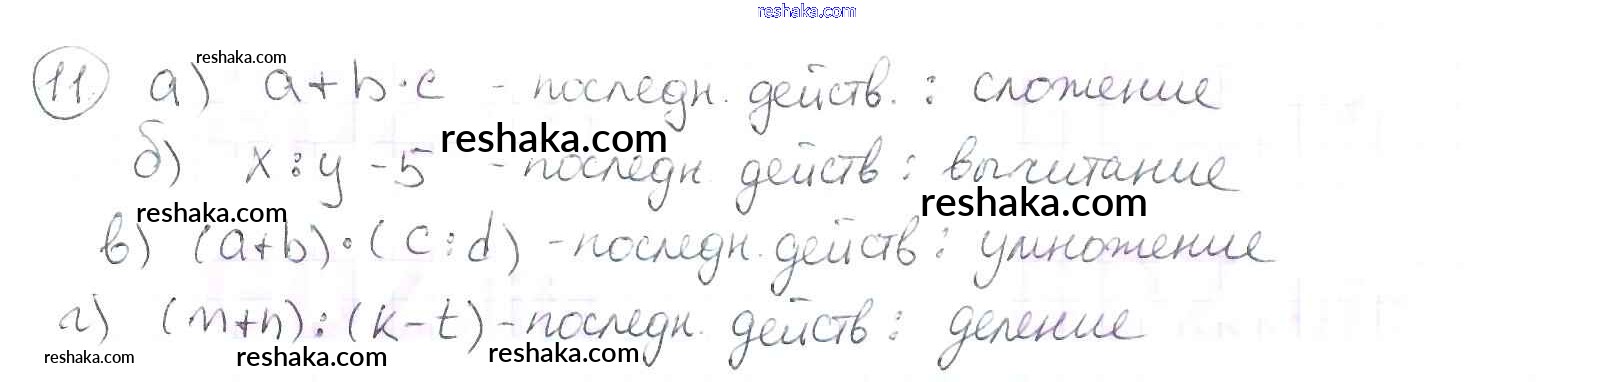 reshaka.com
reshaka.com
11 а) a+b·c - последн. действ. : сложение
reshaka.com
б) x:y-5 - последн действ : вычитание
reshaka.com
reshaka.com
в) (a+b)·(c:d) - последн. действ : умножение
г) (m+n):(k-t) - последн. действ : деление
reshaka.com reshaka.com reshaka.com